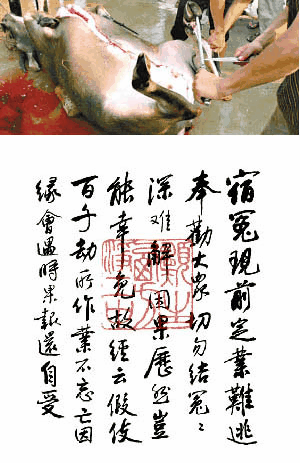 宿冤現前定業難逃
奉勸大家切勿結冤〻
深难解因果歷然豈
能幸免故經云假使
百千劫所作業不亡因
緣會遇時果報還自受